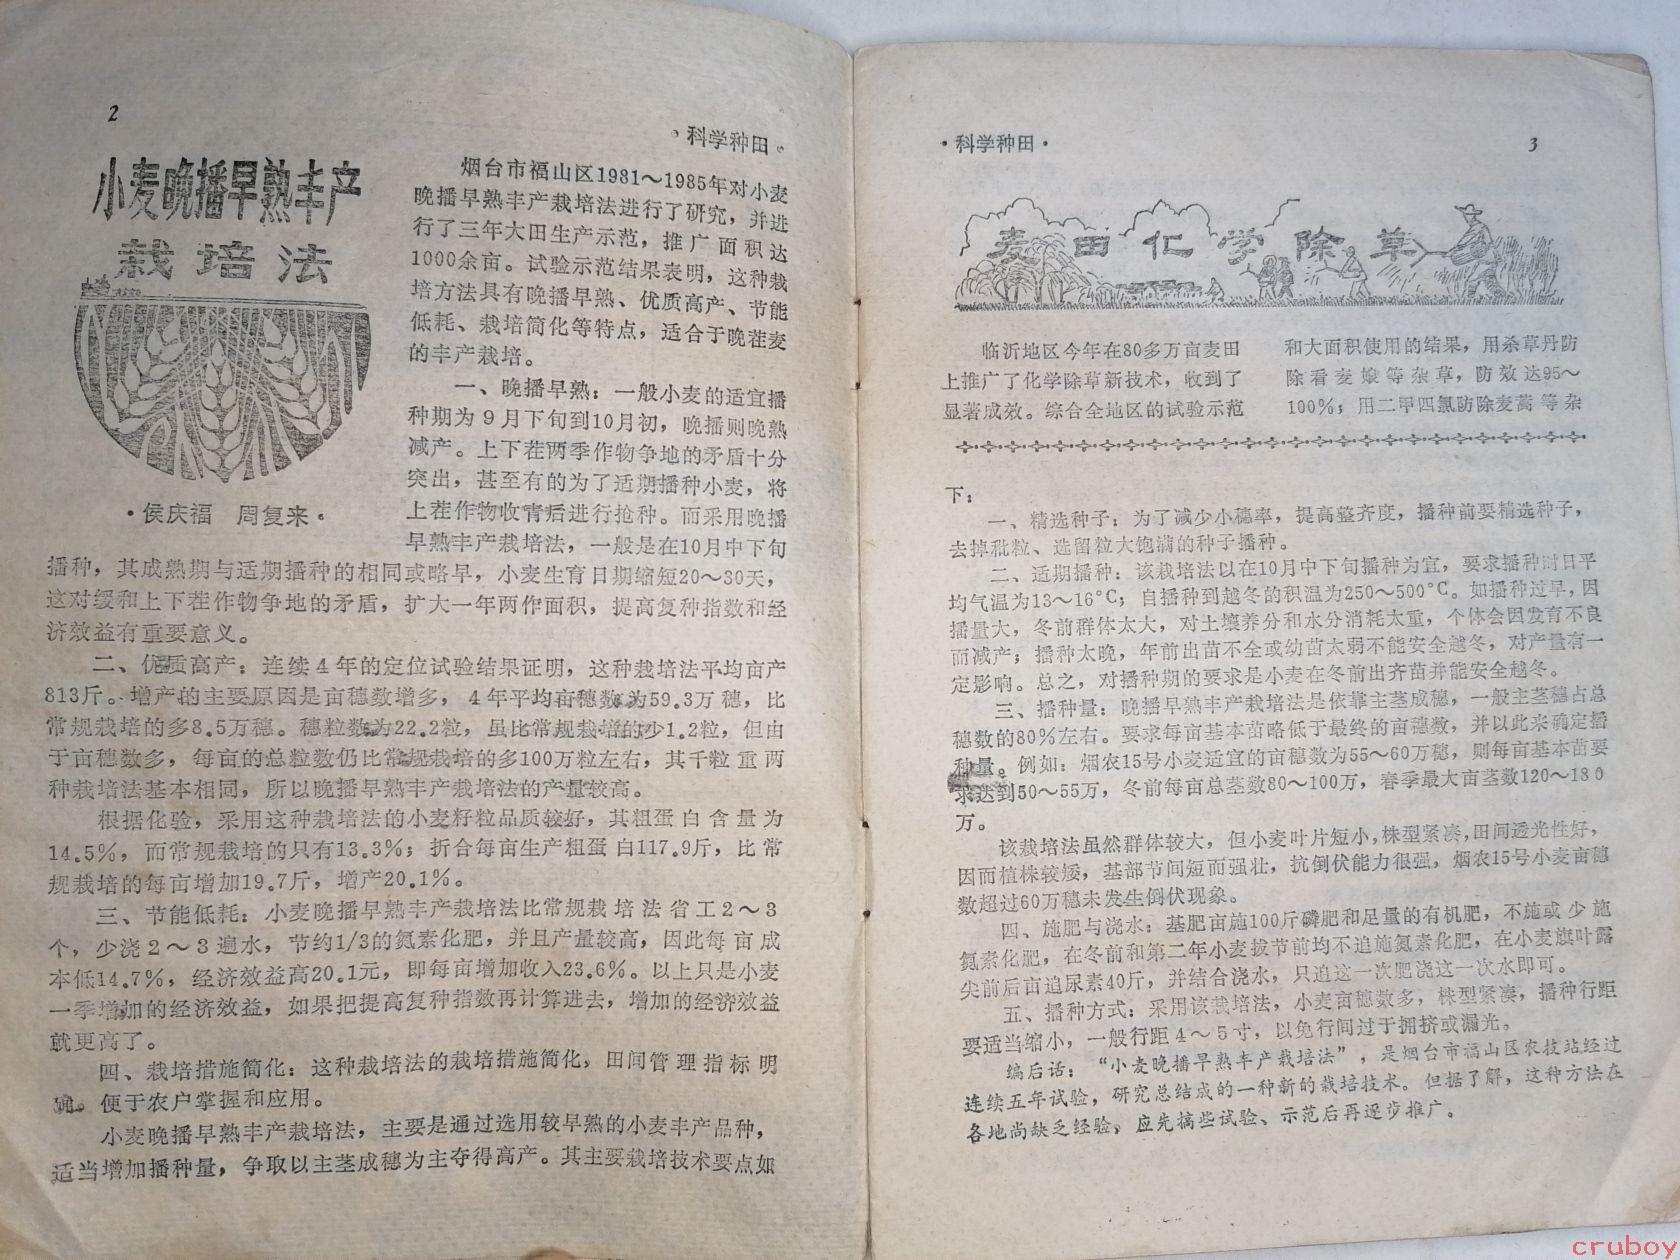 2
·科学种田·
小麦晚播早熟丰产
栽培法
·侯庆福 周复来·
烟台市福山区1981～1985年对小麦
晚播早熟丰产栽培法进行了研究，并进
行了三年大田生产示范，推广面积达
1000余亩。试验示范结果表明，这种栽
培方法具有晚播早熟、优质高产、节能
低耗、栽培简化等特点，适合于晚茬麦
的丰产栽培。
一、晚播早熟：一般小麦的适宜播
种期为9月下旬到10月初，晚播则晚熟
减产。上下茬两季作物争地的矛盾十分
突出，甚至有的为了适期播种小麦，将
上茬作物收青后进行抢种。而采用晚播
早熟丰产栽培法，一般是在10月中下旬
播种，其成熟期与适期播种的相同或略早，小麦生育日期缩短20～30天，
这对缓和上下茬作物争地的矛盾，扩大一年两作面积，提高复种指数和经
济效益有重要意义。
二、优质高产：连续4年的定位试验结果证明，这种栽培法平均亩产
813斤。增产的主要原因是亩穗数增多，4年平均亩穗数为59.3万穗，比
常规栽培的多8.5万穗。穗粒数为22.2粒，虽比常规栽培的少1.2粒，但由
于亩穗数多，每亩的总粒数仍比常规栽培的多100万粒左右，其千粒重两
种栽培法基本相同，所以晚播早熟丰产栽培法的产量较高。
根据化验，采用这种栽培法的小麦籽粒品质较好，其粗蛋白含量为
14.5%，而常规栽培的只有13.3%；折合每亩生产粗蛋白117.9斤，比常
规栽培的每亩增加19.7斤，增产20.1%。
三、节能低耗：小麦晚播早熟丰产栽培法比常规栽培法省工2～3
个，少浇2～3遍水，节约1/3的氮素化肥，并且产量较高，因此每亩成
本低14.7%，经济效益高20.1元，即每亩增加收入23.6%。以上只是小麦
一季增加的经济效益，如果把提高复种指数再计算进去，增加的经济效益
就更高了。
四、栽培措施简化：这种栽培法的栽培措施简化，田间管理指标明
确。便于农户掌握和应用。
小麦晚播早熟丰产栽培法，主要是通过选用较早熟的小麦丰产品种，
适当增加播种量，争取以主茎成穗为主夺得高产。其主要栽培技术要点如
·科学种田·
3
麦田化学除草
临沂地区今年在80多万亩麦田
上推广了化学除草新技术，收到了
显著成效。综合全地区的试验示范
和大面积使用的结果，用杀草丹防
除看麦娘等杂草，防效达95～
100%；用二甲四氯防除麦蒿等杂
下：
一、精选种子：为了减少小穗率，提高整齐度，播种前要精选种子，
去掉秕粒、选留粒大饱满的种子播种。
二、适期播种：该栽培法以在10月中下旬播种为宜，要求播种时日平
均气温为13～16°C；自播种到越冬的积温为250～500°C。如播种过早，因
播量大，冬前群体太大，对土壤养分和水分消耗太重，个体会因发育不良
而减产；播种太晚，年前出苗不全或幼苗太弱不能安全越冬，对产量有一
定影响。总之，对播种期的要求是小麦在冬前出齐苗并能安全越冬。
三、播种量：晚播早熟丰产栽培法是依靠主茎成穗，一般主茎穗占总
穗数的80%左右。要求每亩基本苗略低于最终的亩穗数，并以此来确定播
种量。例如：烟农15号小麦适宜的亩穗数为55～60万穗，则每亩基本苗要
求达到50～55万，冬前每亩总茎数80～100万，春季最大亩茎数120～180
万。
该栽培法虽然群体较大，但小麦叶片短小，株型紧凑，田间透光性好，
因而植株较矮，基部节间短而强壮，抗倒伏能力很强，烟农15号小麦亩穗
数超过60万穗未发生倒伏现象。
四、施肥与浇水：基肥亩施100斤磷肥和足量的有机肥，不施或少施
氮素化肥，在冬前和第二年小麦拔节前均不追施氮素化肥，在小麦旗叶露
尖前后亩追尿素40斤，并结合浇水，只追这一次肥浇这一次水即可。
五、播种方式：采用该栽培法，小麦亩穗数多，株型紧凑，播种行距
要适当缩小，一般行距4～5寸，以免行间过于拥挤或漏光。
编后话：“小麦晚播早熟丰产栽培法”，是烟台市福山区农技站经过
连续五年试验，研究总结成的一种新的栽培技术。但据了解，这种方法在
各地尚缺乏经验，应先搞些试验、示范后再逐步推广。
cruboy